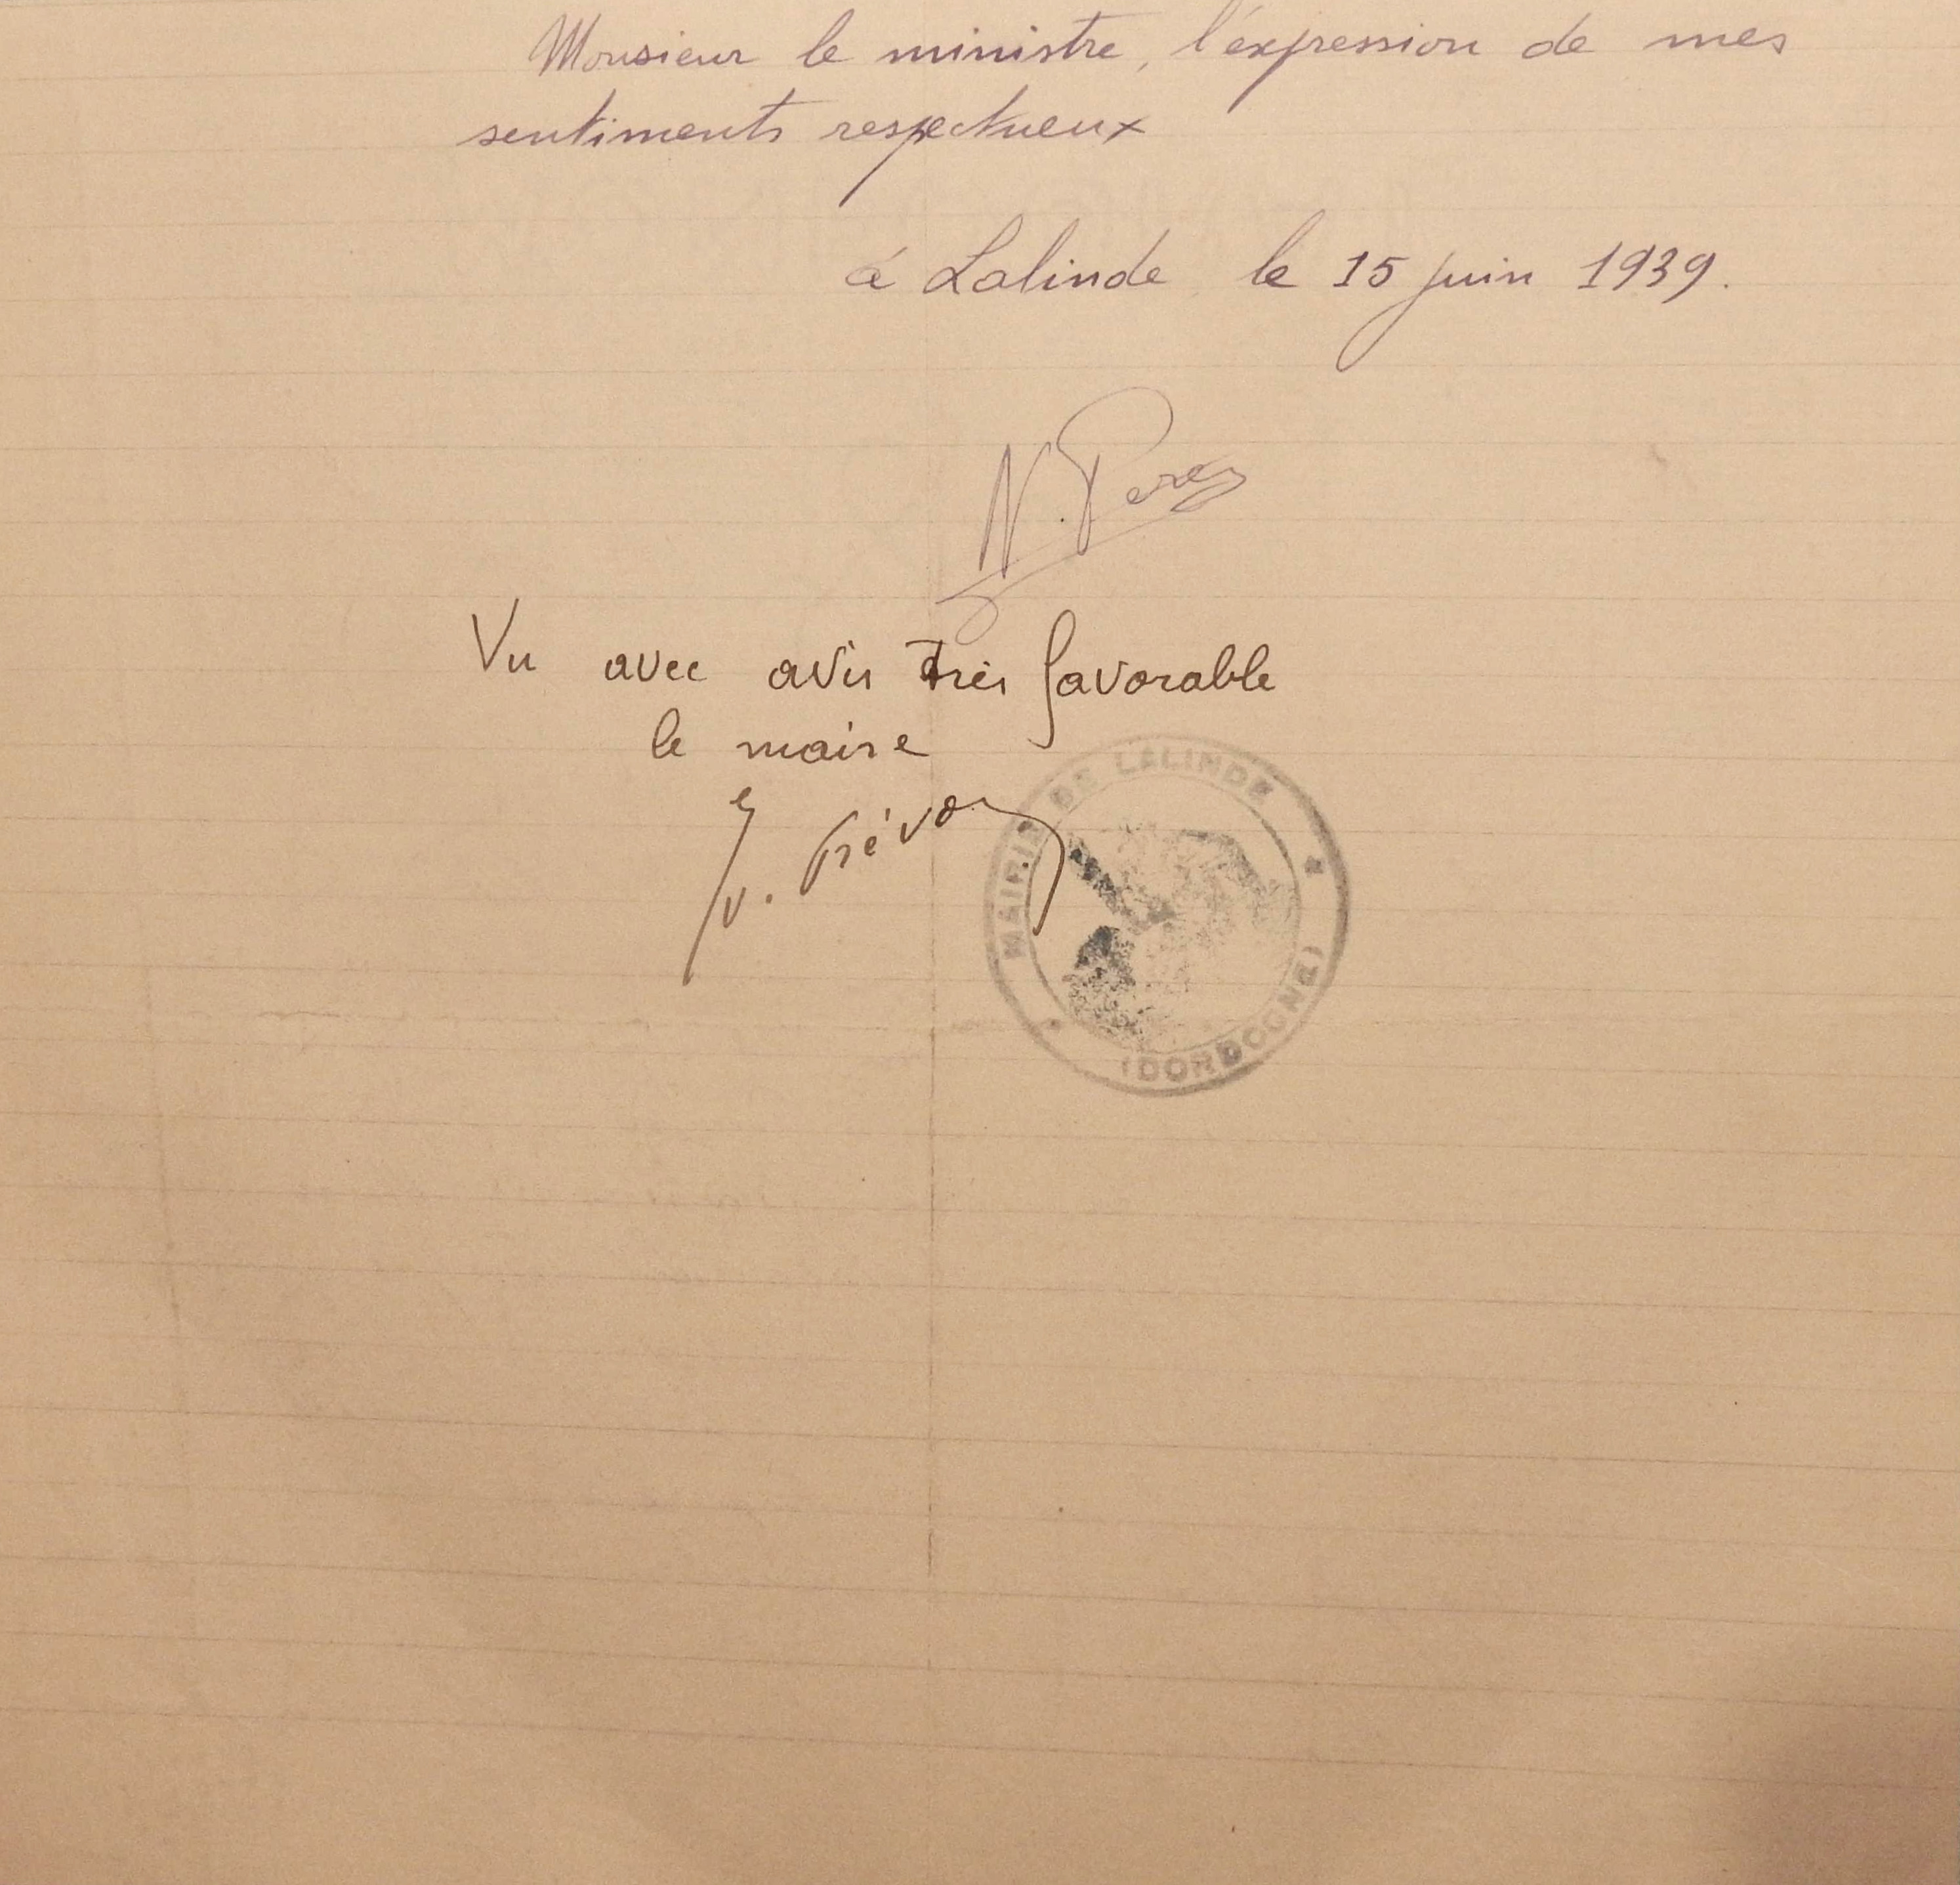 Monsieur le ministre, l'éxpression de mes
sentiments respectueux
à Lalinde le 15 juin 1939.
N. Perez
Vu avec avis très favorable
le maire
MAIRIE DE LALINDE
(DORDOGNE)